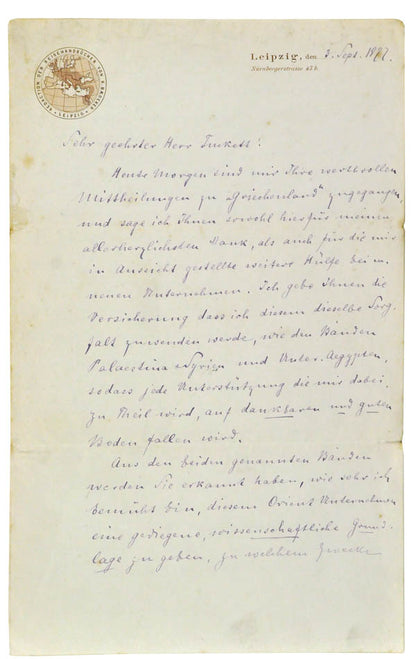 REDACTION DER REISEHANDBÜCHER VON K. BAEDEKER LEIPZIG
Leipzig, den 3. Sept. 1877.
Nürnbergerstrasse 43 b.
Sehr geehrter Herr Tuckett!
Heute Morgen sind mir Ihre werthvollen
Mittheilungen zu „Griechenland" zugegangen,
und sage ich Ihnen sowohl hierfür meinen
allerherzlichsten Dank, als auch für die mir
in Aussicht gestellte weitere Hülfe beim
neuen Unternehmen. Ich gebe Ihnen die
Versicherung dass ich diesem dieselbe Sorg-
falt zuwenden werde, wie den Bänden
Palaestina & Syrien und Unter-Aegypten,
sodass jede Unterstützung die mir dabei
zu Theil wird, auf dankbaren und guten
Boden fallen wird.
Aus den beiden genannten Bänden
werden Sie erkannt haben, wie sehr ich
bemüht bin, diesem Orient Unternehmen
eine gediegene, wissenschaftliche Grund-
lage zu geben, zu welchem Zwecke